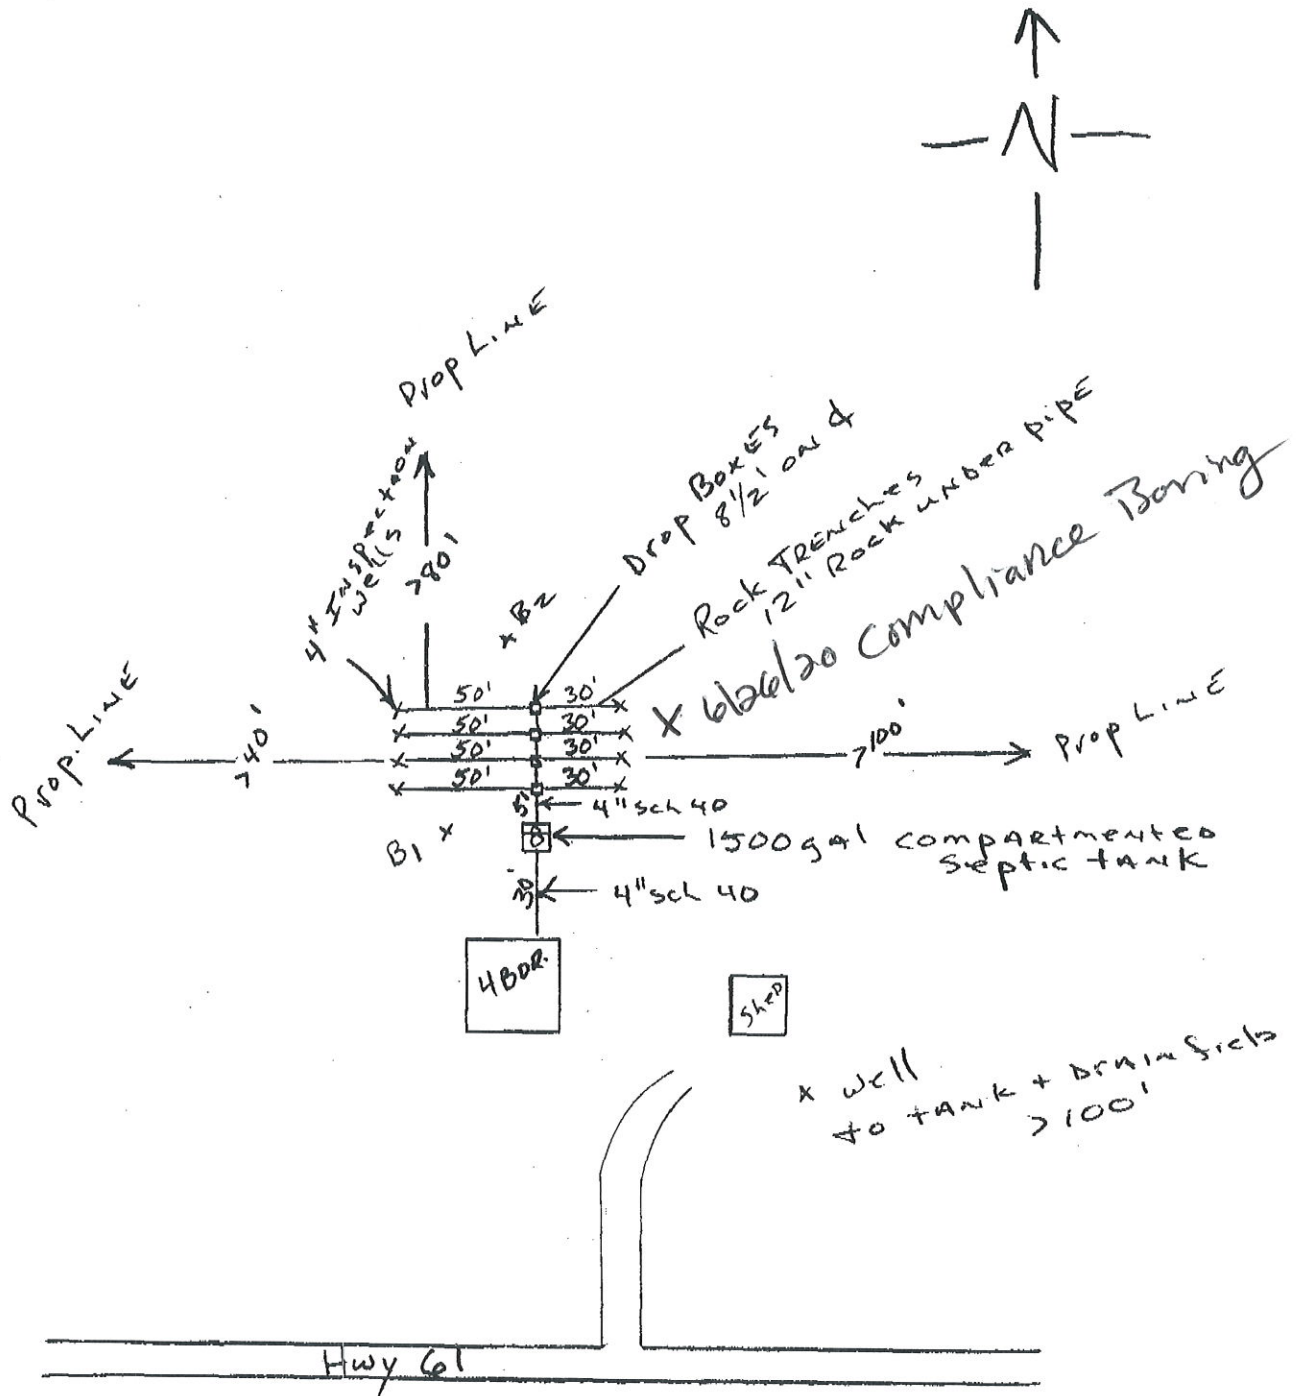 N
Prop LINE
4" Inspection
wells
>80'
Drop Boxes
8 1/2' on ¢
Rock TRENches
12" Rock under pipe
x B2
X 6/26/20 Compliance Boring
Prop. LINE
>40'
50' 30'
50' 30'
50' 30'
50' 30'
>100'
Prop LINE
5'
4" Sch 40
B1 x
1500 gal compartmented
Septic tank
30'
4" Sch 40
4 BDR.
Shed
x well
to tank + Drainfield
>100'
Hwy 61